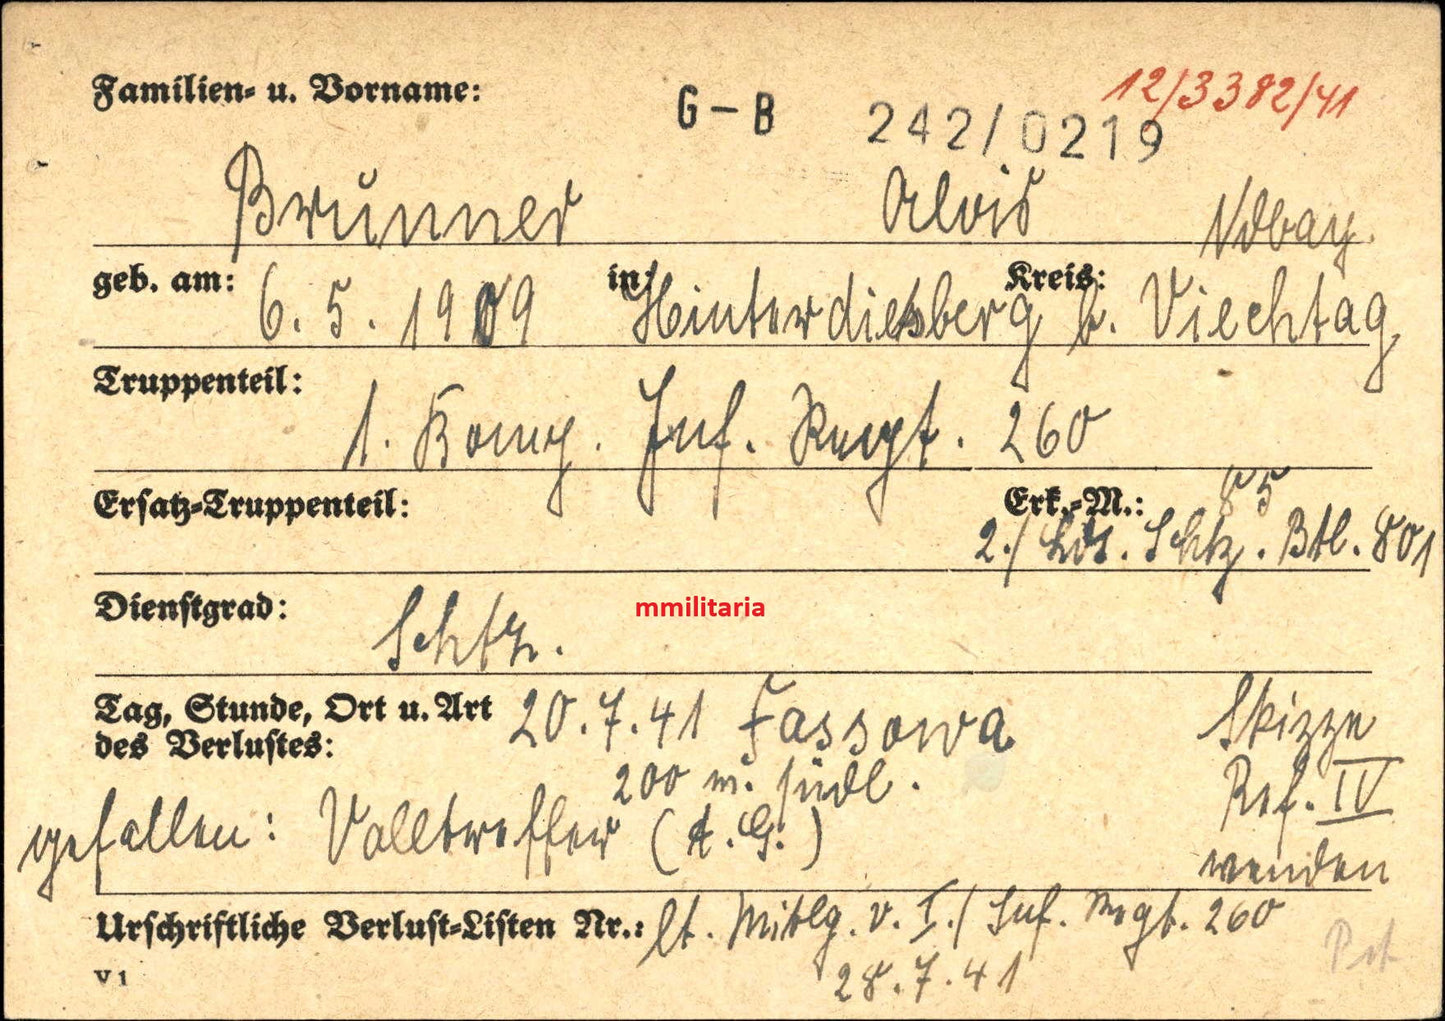 12/3382/41
Familien- u. Vorname:
G-B 242/0219
Brunner Alois Ndbay.
geb. am: 6.5.1909 in: Hinterdietsberg b. Viechtag Kreis:
Truppenteil:
1. Komp. Inf. Regt. 260
Ersatz-Truppenteil: Erk.-M.: 85
2./ Lds. Schtz. Btl. 801
Dienstgrad: Schtz.
mmilitaria
Tag, Stunde, Ort u. Art 20.7.41 Fassowa Skizze
des Verlustes: 200 m. südl. Ref. IV
gefallen: Volltreffer (A.G.) wenden
Urschriftliche Verlust-Listen Nr.: lt. Mittlg. v. I./ Inf. Regt. 260
28.7.41
V 1